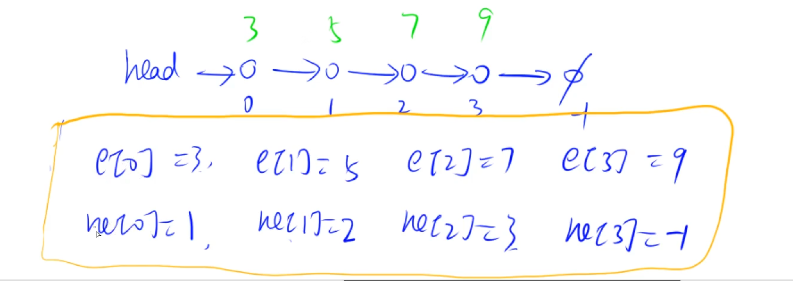 3 5 7 9
head →0 →0 →0 →0 → ∅
0 1 2 3 -1
e[0]=3, e[1]=5 e[2]=7 e[3]=9
ne[0]=1, ne[1]=2 ne[2]=3 ne[3]=-1